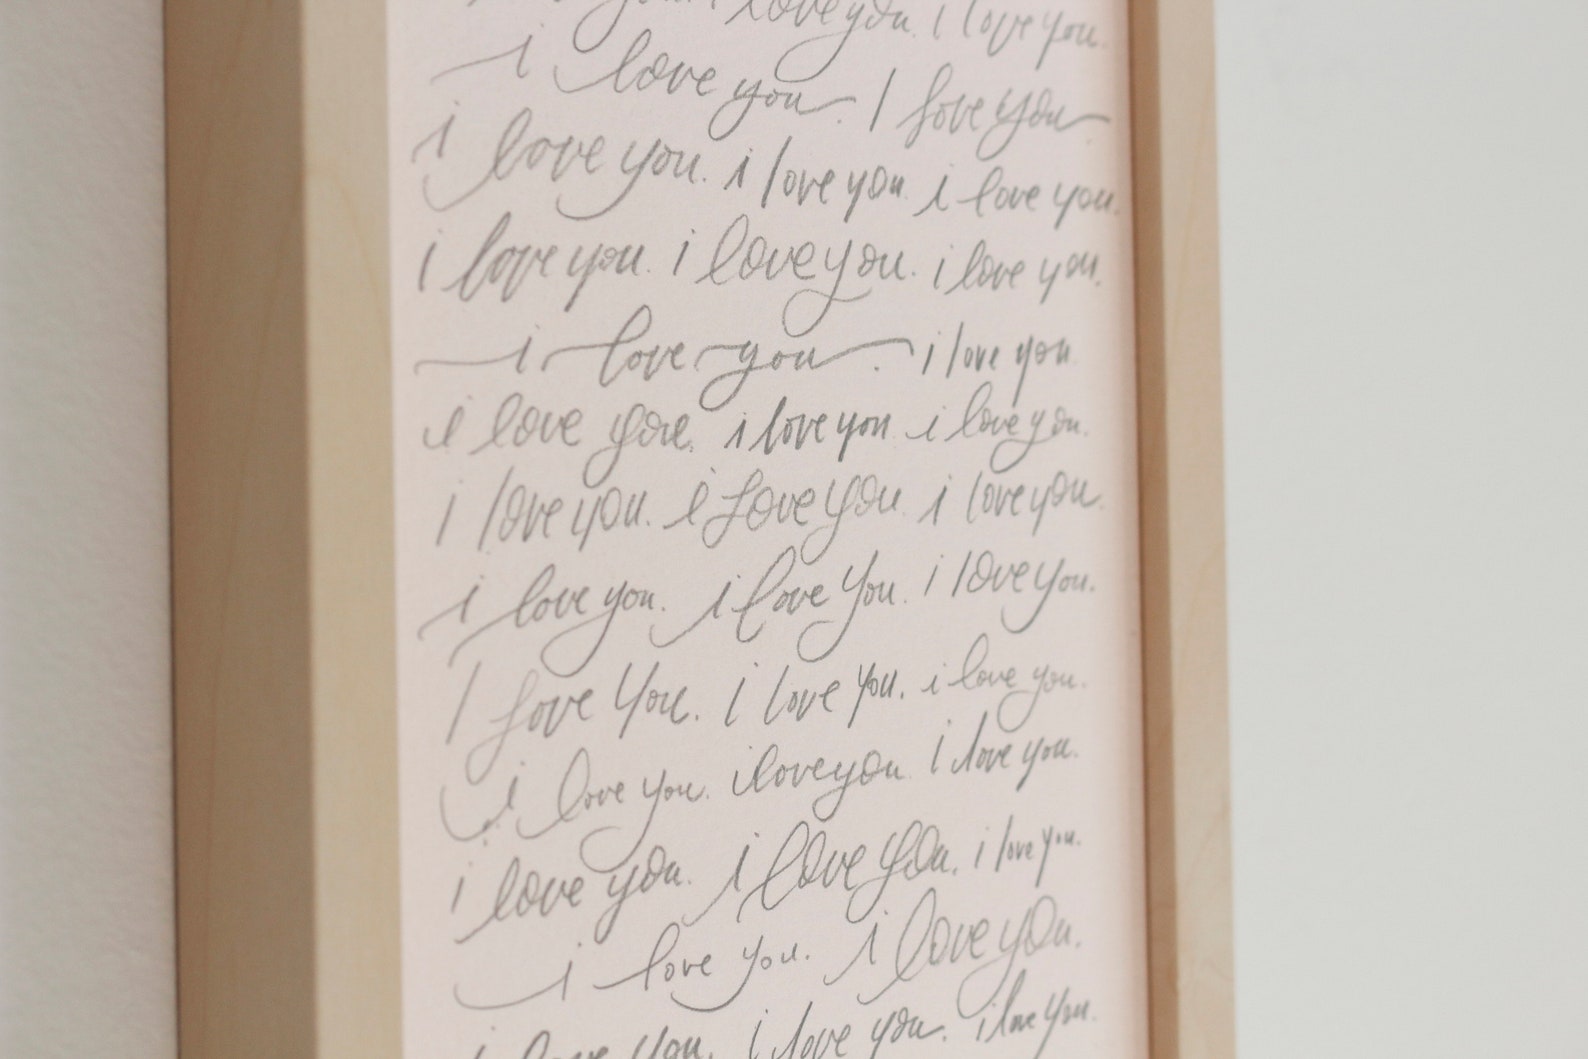 you. i love you. i love you.
i love you. I love you.
i love you. i love you. i love you.
i love you. i love you. i love you.
i love you. i love you.
i love you. i love you. i love you.
i love you. i love you. i love you.
i love you. i love you. i love you.
I love you. I love you. i love you.
i love you. i love you. I love you.
i love you. i love you. i love you.
i love you. i love you.
i love you. i love you. i love you.